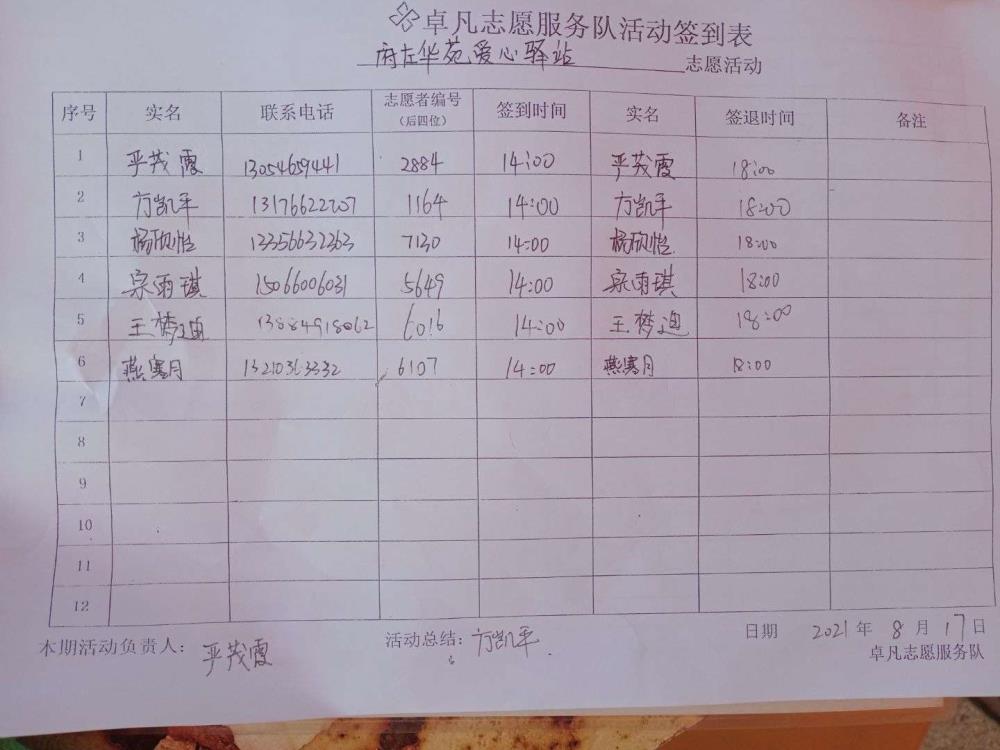 卓凡志愿服务队活动签到表
府左华苑爱心驿站 志愿活动
序号 实名 联系电话 志愿者编号（后四位） 签到时间 实名 签退时间 备注
1 严茂霞 13054659441 2884 14:00 严茂霞 18:00
2 方凯平 13176622707 1164 14:00 方凯平 18:00
3 杨欣怡 13356632363 7130 14:00 杨欣怡 18:00
4 宗雨琪 15066006031 5649 14:00 宗雨琪 18:00
5 王梦迪 13884918062 6016 14:00 王梦迪 18:00
6 燕寒月 13210363332 6107 14:00 燕寒月 18:00
7
8
9
10
11
12
本期活动负责人：严茂霞 活动总结：方凯平 日期 2021年8月17日
卓凡志愿服务队